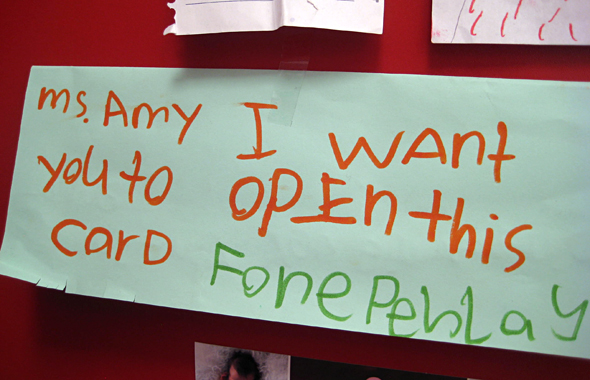 ms. Amy I want
you to OPEn this
card FonePeblay